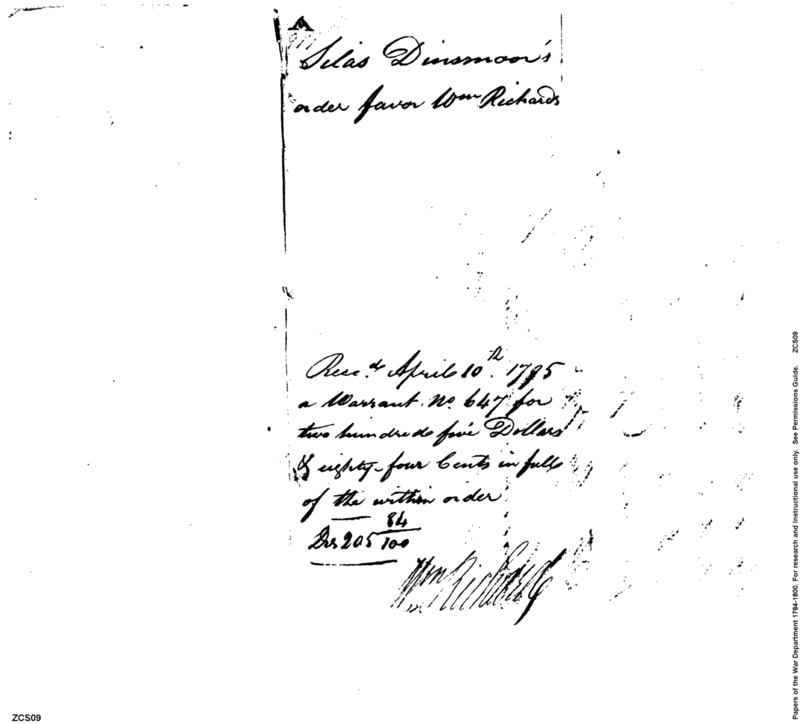 Silas Dinsmoor's
order favor Wm Richards
Recd. April 10th. 1795
a Warrant No. 647 for
two hundred & five Dollars
& eighty-four Cents in full
of the within order
Drs 205 84/100
Wm Richards
Papers of the War Department 1784-1800. For research and Instructional use only. See Permissions Guide. ZCS09
ZCS09